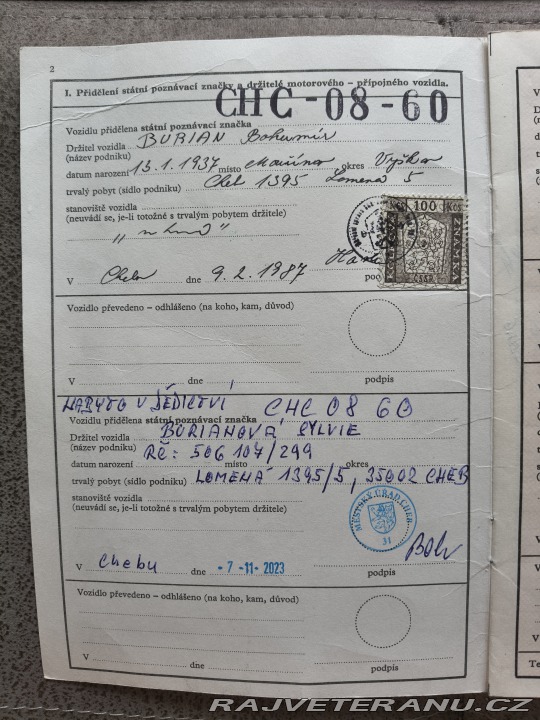 2
I. Přidělení státní poznávací značky a držitelé motorového – přípojného vozidla.
CHC-08-60
Vozidlu přidělena státní poznávací značka
Držitel vozidla BURIAN Bohumír
(název podniku)
datum narození 13.1.1937 místo okres Vyškov
trvalý pobyt (sídlo podniku) Cheb 1395 Lomená 5
stanoviště vozidla
(neuvádí se, je-li totožné s trvalým pobytem držitele)
100 Kčs
V Cheb dne 9.2.1987
podpis
Vozidlo převedeno – odhlášeno (na koho, kam, důvod)
V dne
podpis
NABYTO V DĚDICTVÍ CHC 08 60
Vozidlu přidělena státní poznávací značka
Držitel vozidla BURIANOVÁ SYLVIE
(název podniku) RČ: 506107/299
datum narození místo okres
trvalý pobyt (sídlo podniku) LOMENÁ 1395/5, 35002 CHEB
stanoviště vozidla
(neuvádí se, je-li totožné s trvalým pobytem držitele)
MĚSTSKÝ ÚŘAD CHEB
31
V Chebu dne -7-11-2023
podpis
Vozidlo převedeno – odhlášeno (na koho, kam, důvod)
V dne
podpis
RAJVETERANU.CZ